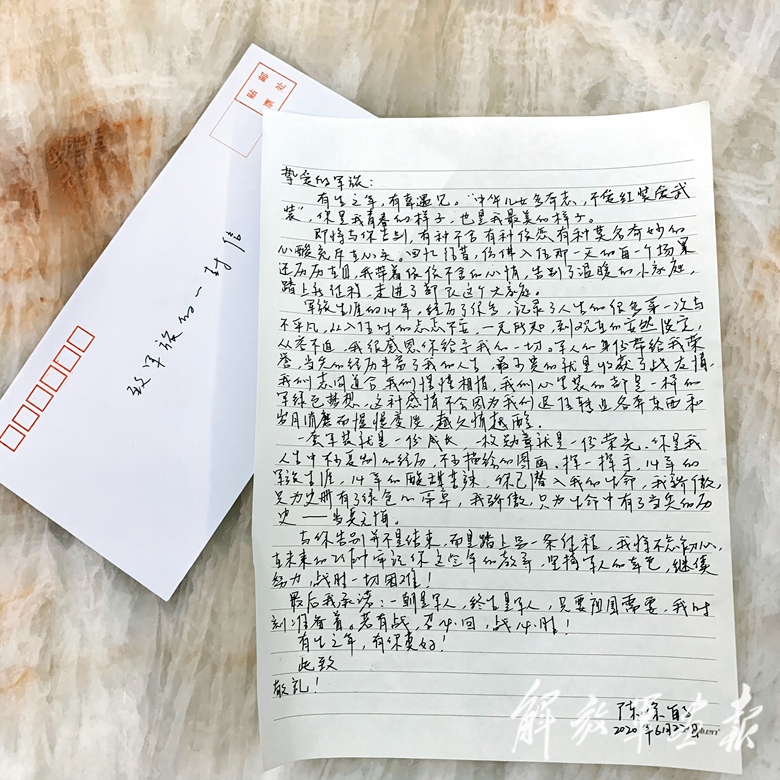 贴邮
票处
致军旅的一封信
挚爱的军旅：
有生之年，有幸遇见。“中华儿女多奇志，不爱红装爱武
装”，你是我青春的样子，也是我最美的样子。
即将与你告别，有种不舍有种依恋有种莫名奇妙的
心酸充斥在心头。回忆往昔，仿佛入伍那一天的每一个场景
还历历在目，我带着依依不舍的心情，告别了温暖的小家庭，
踏上新征程，走进了部队这个大家庭。
军旅生涯的14年，经历了很多，记录了人生的很多第一次与
不平凡，从入伍时的忐忑不安，一无所知，到现在的安然淡定，
从容不迫，我很感恩你给予我的一切。军人的身份带给我荣
誉，当兵的经历丰富了我的人生，最可贵的就是收获了战友情，
我们志同道合我们惺惺相惜，我们心里装的都是一样的
军绿色梦想，这种感情不会因为我们退伍转业各奔东西和
岁月消磨而慢慢变淡，越久情越醇。
一套军装就是一份成长，一枚勋章就是一份荣光，你是我
人生中不可复制的经历，不可描绘的图画。挥一挥手，14年的
军旅生涯，14年的酸甜苦辣，你已潜入我的生命，我骄傲，
只为史册有了绿色的篇章，我骄傲，只为生命中有了当兵的历
史——当兵无悔。
与你告别并不是结束，而是踏上另一条征程，我将不忘初心，
在未来的日子牢记你这些年的教导，坚持军人的本色，继续
努力，战胜一切困难！
最后我承诺：一朝是军人，终生是军人，只要祖国需要，我时
刻准备着。若有战，召必回，战必胜！
有生之年，有你真好！
此致
敬礼！
2020年6月22日
解放军画报